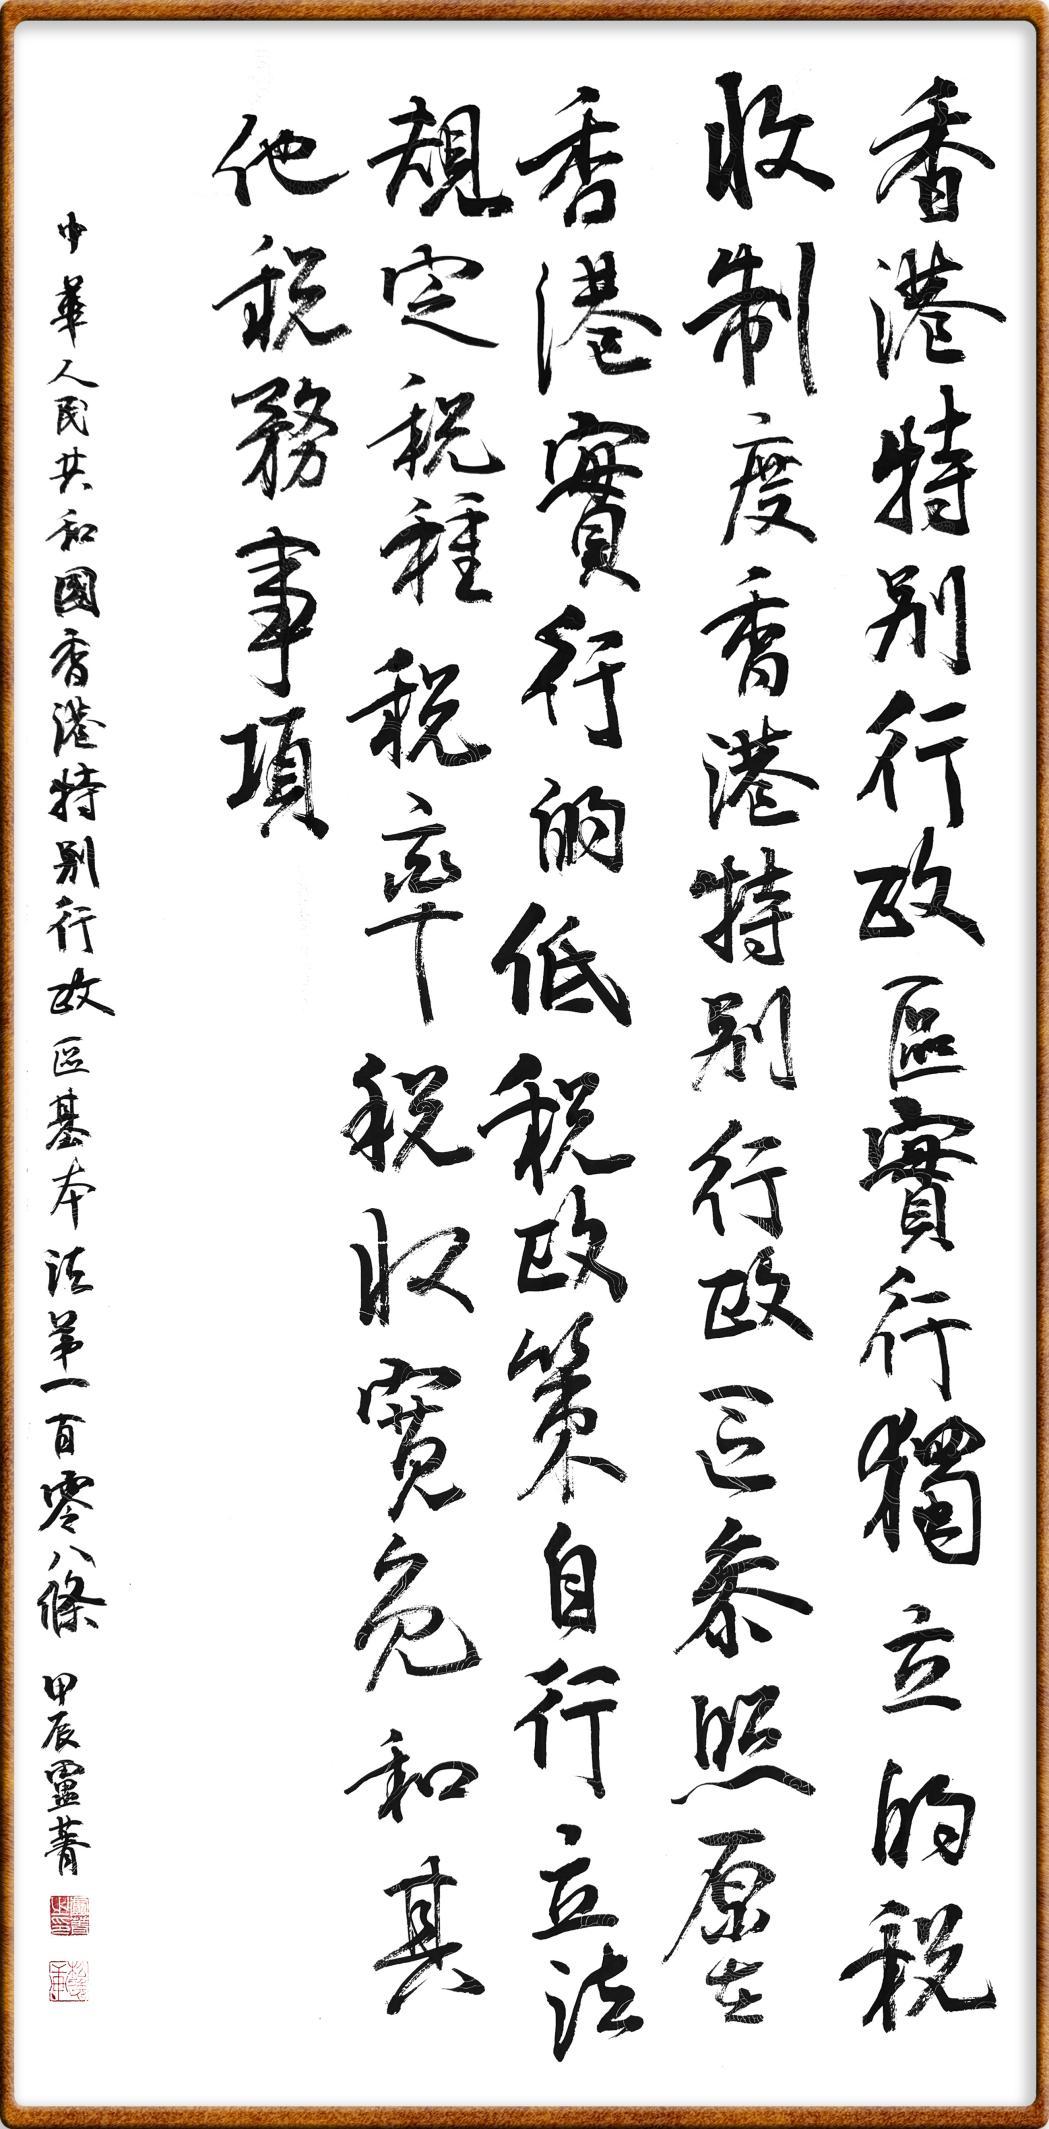 香港特别行政區實行獨立的税
收制度香港特别行政區參照原在
香港實行的低税政策自行立法
規定税種税率税收寬免和其
他税務事項
中華人民共和國香港特别行政區基本法第一百零八條 甲辰靈菁